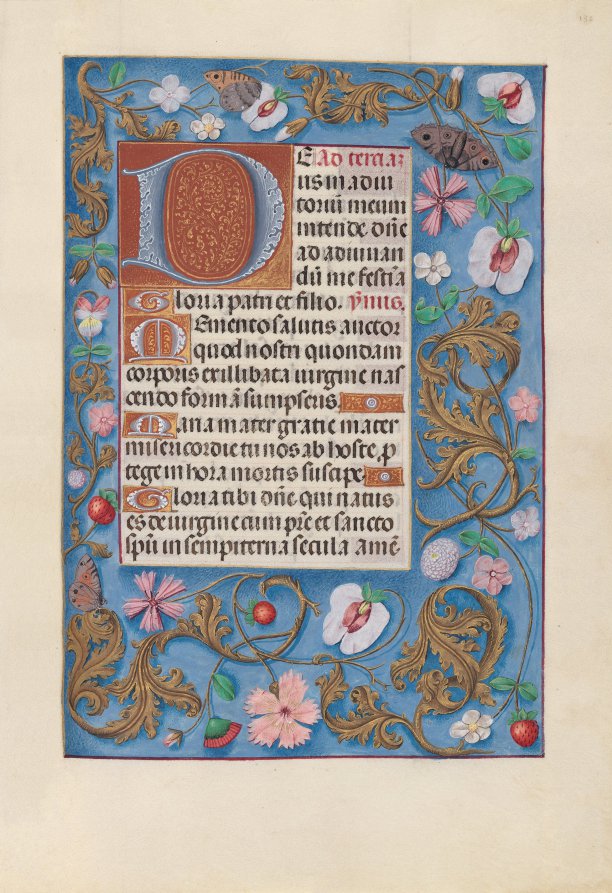 132
DE Ad terciaz
us in adiu
toriū meum
intende dn̄e
ad adiuuan
dū me festīa
Gloria patri et filio. ẏmnus.
Memento salutis auctor
quod nostri quondam
corporis ex illibata uirgine nas
cendo formā sumpseris.
Maria mater gratie mater
misericordie tu nos ab hoste, p
tege in hora mortis suscipe.
Gloria tibi dn̄e qui natus
es de uirgine cum pr̄e et sancto
spū in sempiterna secula amē